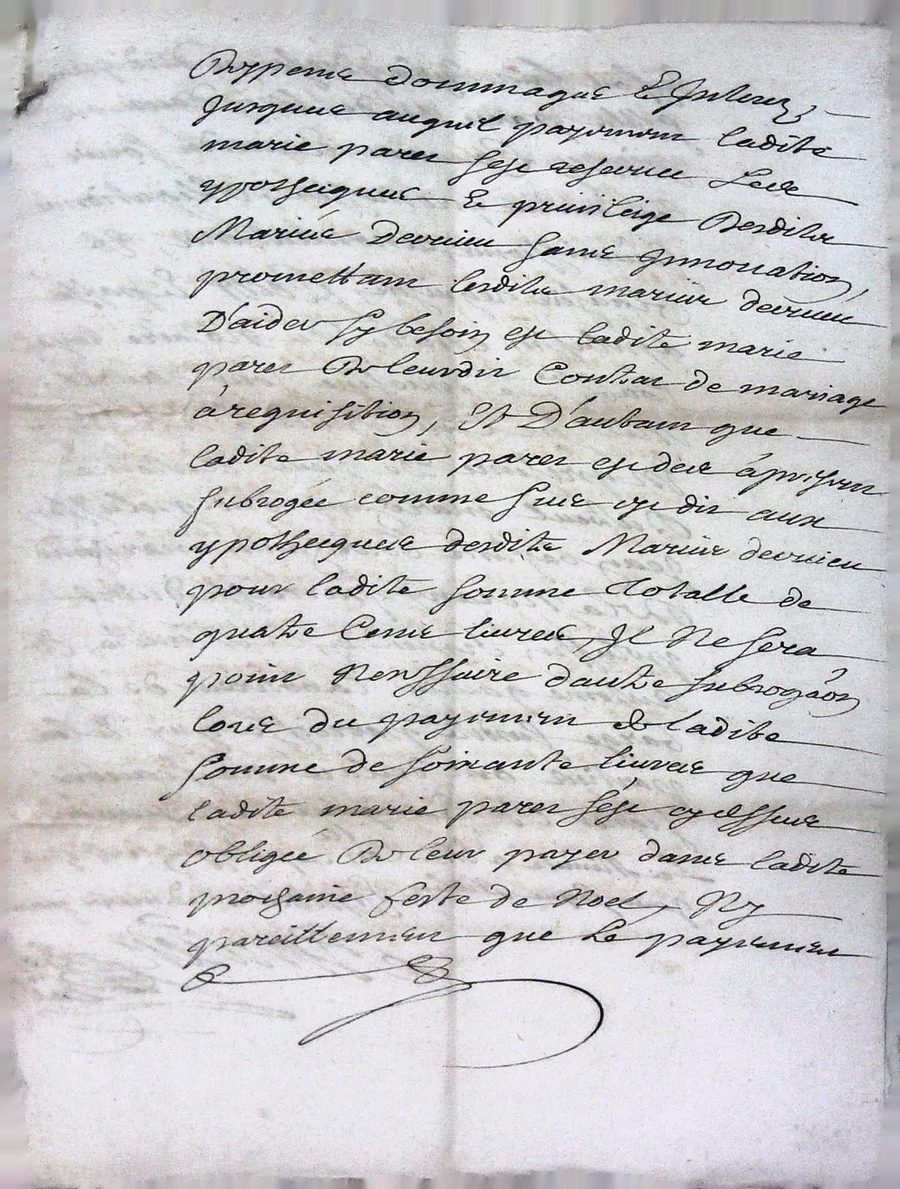 De peine dommages Et Interez,
Jusques auquel payement ladite
marie parer sest reservee Les
ypothecques Et privileige Desdits
Mariés Derrieu sans Innovation,
promettant lesdits mariés derrieu
D'aider sy besoin est ladite marie
parer De leurdit Contrat de mariage
à requisition, Et D'autant que
ladite marie parer est des à présent
subrogée comme sus est dit aux
ypothecques desdits Mariés derrieu
pour ladite somme Totalle de
quatre Cens livres, Il Ne sera
point Nenssaire d'autre subrogaôn
lors du payement De ladite
somme de soixante livres que
ladite marie parer s'est cydessus
obligée De leur payer dans ladite
prochaine feste de Noel, Ny
pareillement que Le payement